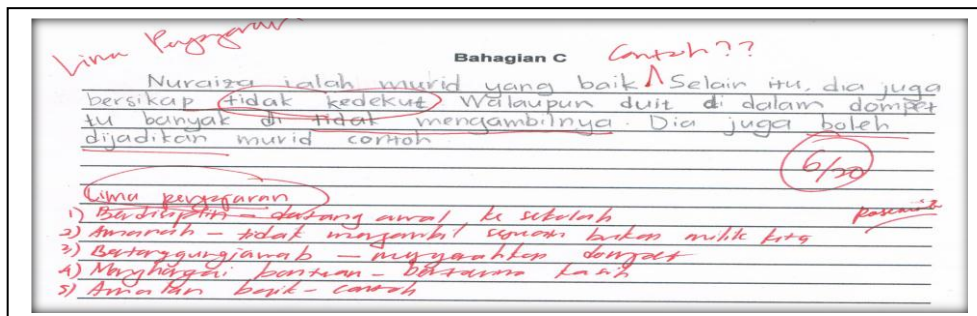 Lima Pengajaran
Bahagian C
Contoh ??
Nuraiza ialah murid yang baik Selain itu, dia juga
bersikap tidak kedekut Walaupun duit di dalam dompet
tu banyak di tidak mengambilnya. Dia juga boleh
dijadikan murid contoh
6/20
Lima pengajaran
1) Berdisiplin – datang awal ke sekolah
2) Amanah – tidak mengambil sesuatu bukan milik kita
3) Bertanggungjawab – menyerahkan dompet
4) Menghargai bantuan – berterima kasih
5) Amalan baik – contoh